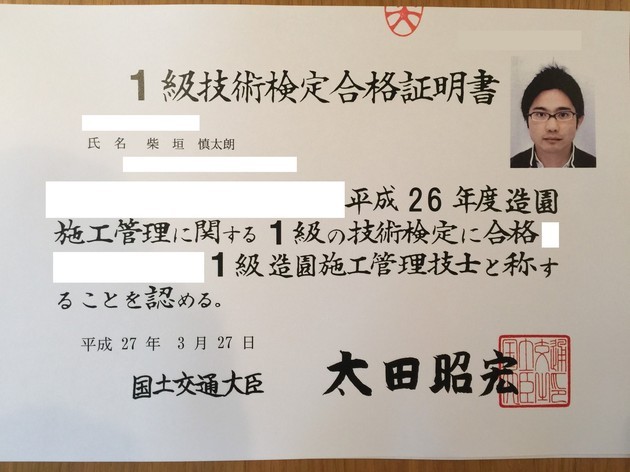 1級技術検定合格証明書
氏 名 柴 垣 慎太朗
平成 26 年度造園
施工管理に関する 1 級の技術検定に合格
1 級 造園施工管理技士と称す
ることを認める。
平成 27 年 3 月 27 日
国土交通大臣 太田昭宏